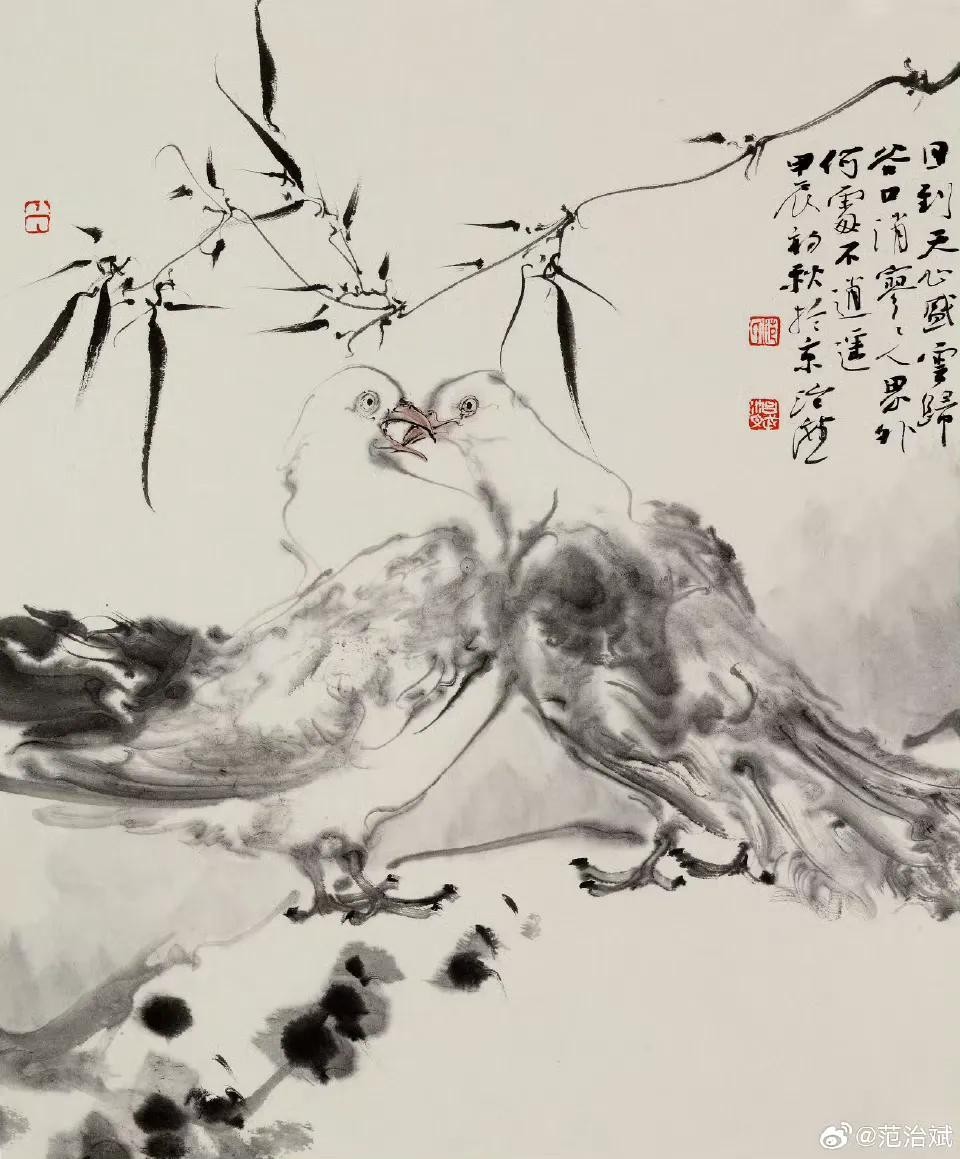 日到天心盛雲歸
谷口消寥〻人界外
何處不逍遥
甲辰初秋於京治斌
@范治斌